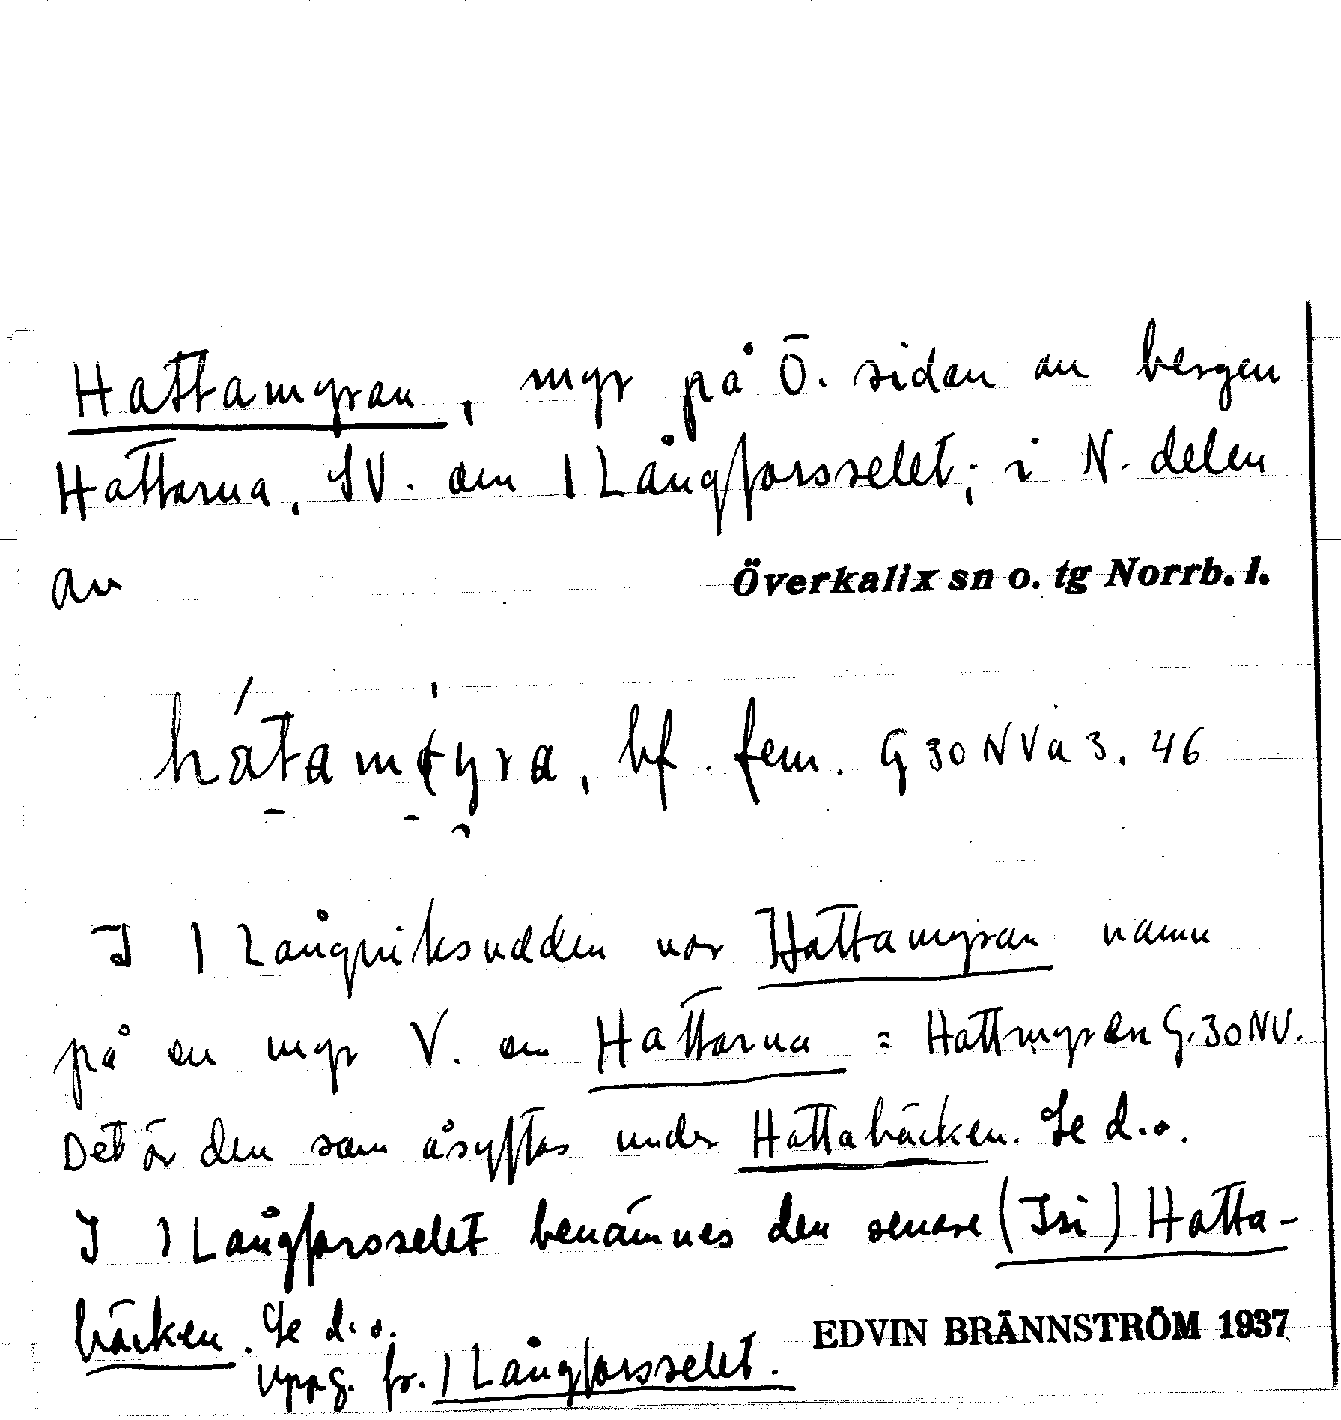 Hattamyran, myr på Ö. sidan av bergen
Hattarna, SV. om 1 Långforsselet; i N. delen
av
Överkalix sn o. tg Norrb. l.
bf. fem. G 30 NV a 3. 46
I 1 Långviksudden var Hattamyran namn
på en myr V. om Hattarna = Hattmyren G. 30 NV.
Det är den som åsyftas under Hattabäcken. Se d.o.
I 1 Långforsselet benämnes den senare (Isi) Hatta-
bäcken. Se d.o.
EDVIN BRÄNNSTRÖM 1937
Uppg. fr. 1 Långforsselet.